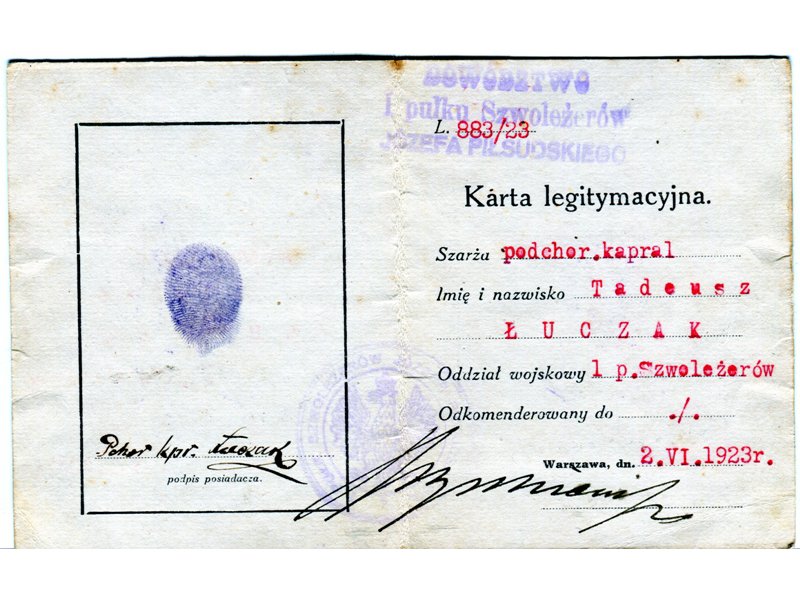 DOWÓDZTWO
1 pułku Szwoleżerów
JÓZEFA PIŁSUDSKIEGO
L. 883/23
Karta legitymacyjna.
Szarża podchor.kapral
Imię i nazwisko Tadeusz
ŁUCZAK
Oddział wojskowy 1 p.Szwoleżerów
Odkomenderowany do ./.
Warszawa, dn. 2.VI.1923r.
Pchor kpr. Łuczak
podpis posiadacza.